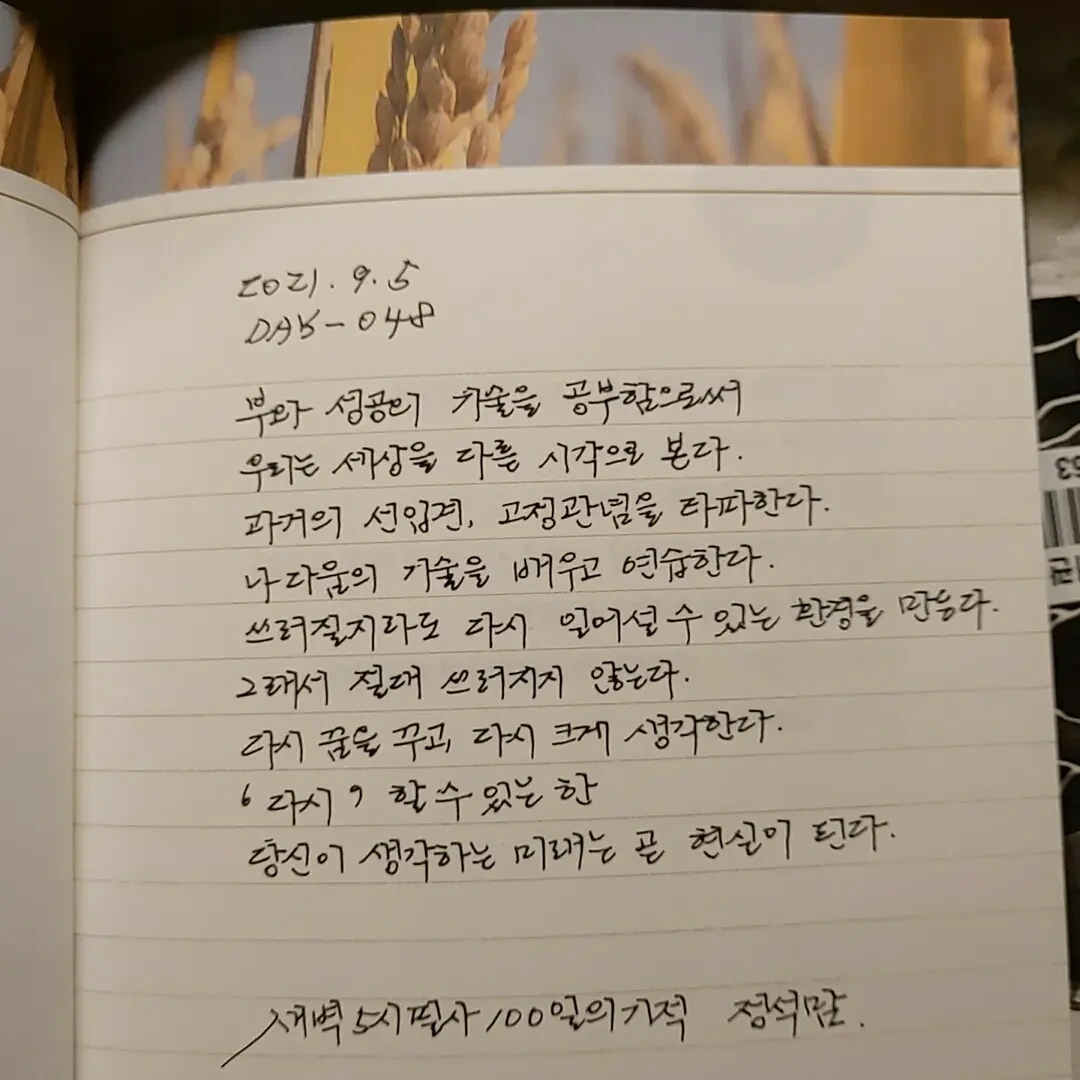 2021.9.5
DAY-048
부와 성공의 기술을 공부함으로써
우리는 세상을 다른 시각으로 본다.
과거의 선입견, 고정관념을 타파한다.
나다움의 기술을 배우고 연습한다.
쓰러질지라도 다시 일어설 수 있는 환경을 만든다.
그래서 절대 쓰러지지 않는다.
다시 꿈을 꾸고, 다시 크게 생각한다.
'다시' 할 수 있는 한
당신이 생각하는 미래는 곧 현실이 된다.
새벽5시필사100일의기적 정석맘.